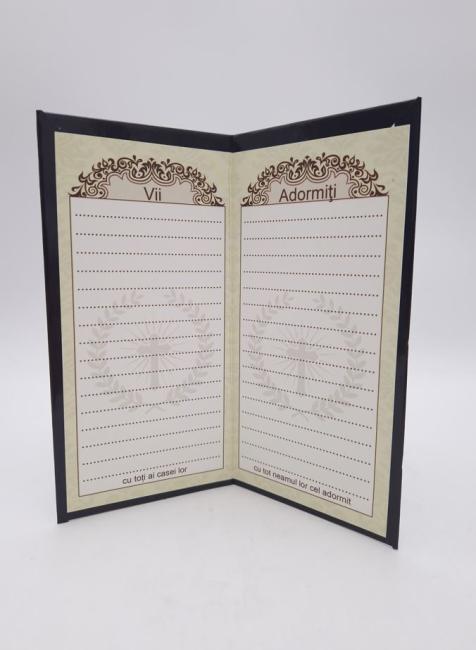 Vii
cu toți ai casei lor
Adormiţi
cu tot neamul lor cel adormit